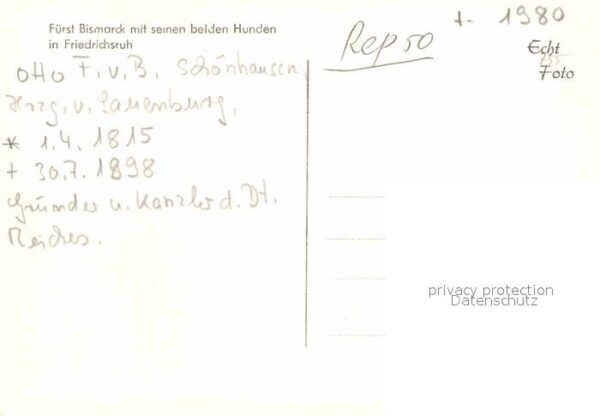 Fürst Bismarck mit seinen beiden Hunden
in Friedrichsruh
Otto F. v. B. Schönhausen,
Hrzg. v. Lauenburg,
* 1.4. 1815
+ 30.7. 1898
Gründer u. Kanzler d. Dt.
Reiches.
Repro
+ 1980
Echt
Foto
privacy protection
Datenschutz